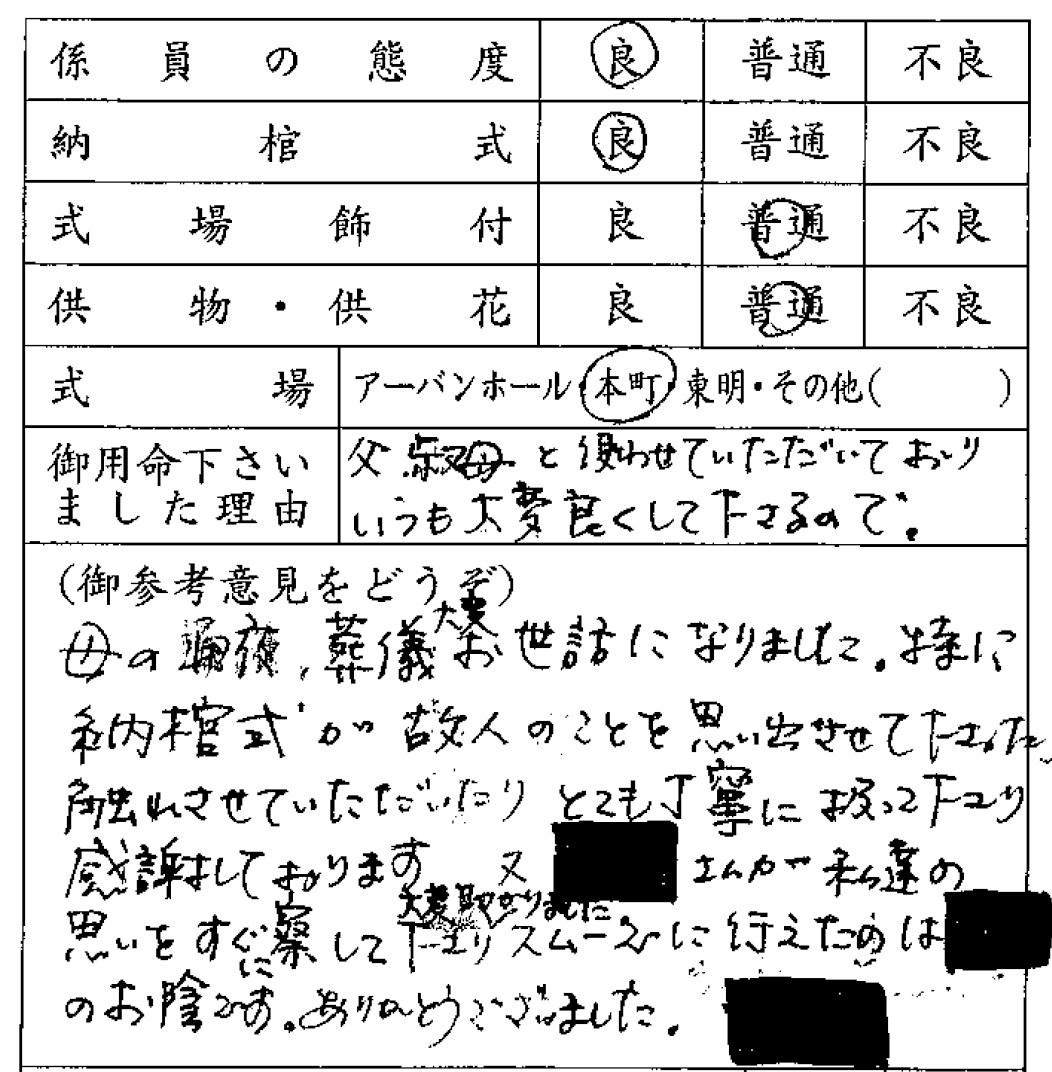 係員の態度 良 普通 不良
納棺式 良 普通 不良
式場飾付 良 普通 不良
供物・供花 良 普通 不良
式場 アーバンホール・本町・東明・その他( )
御用命下さい
ました理由
父 叔母 と使わせていただいており
いつも大変良くして下さるので。
(御参考意見をどうぞ)
母の通夜、葬儀大変お世話になりました。特に
納棺式が故人のことを思い出させて下さった
触れさせていただいたり とても丁寧に扱って下さり
感謝しております 又 さんが私達の
思いをすぐに察して下さり大変助かりました。スムーズに行えたのは
のお陰です。ありがとうございました。